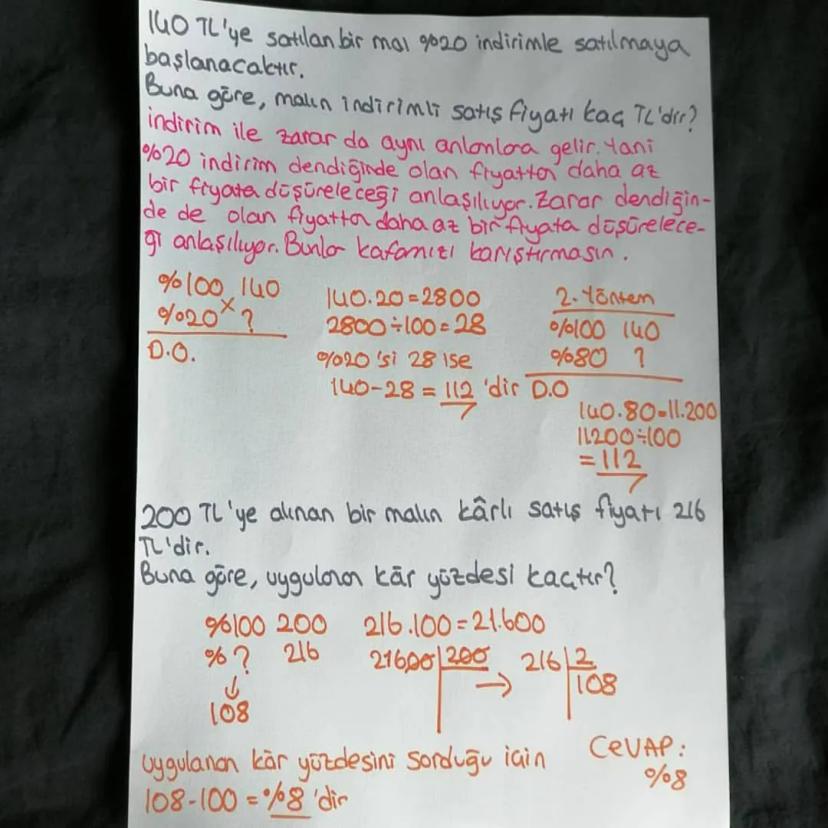 140 TL'ye satılan bir mal %20 indirimle satılmaya
başlanacaktır.
Buna göre, malın indirimli satış fiyatı kaç TL'dir?
indirim ile zarar da aynı anlamlara gelir. Yani
%20 indirim dendiğinde olan fiyattan daha az
bir fiyata düşüreleceği anlaşılıyor. Zarar dendiğin-
de de olan fiyattan daha az bir fiyata düşürelece-
ği anlaşılıyor. Bunlar kafamızı karıştırmasın.
%100 140
%20 x ?
D.O.
140.20=2800
2800÷100=28
%20'si 28 ise
140-28=112'dir
2. Yöntem
%100 140
%80 ?
D.O
140.80=11.200
11200÷100
=112
200 TL'ye alınan bir malın kârlı satış fiyatı 216
TL'dir.
Buna göre, uygulanan kâr yüzdesi kaçtır?
%100 200
%? 216
↓
108
216.100=21.600
21600 200 → 216 2
108
Uygulanan kâr yüzdesini sorduğu için
108-100=%8'dir
CEVAP:
%8